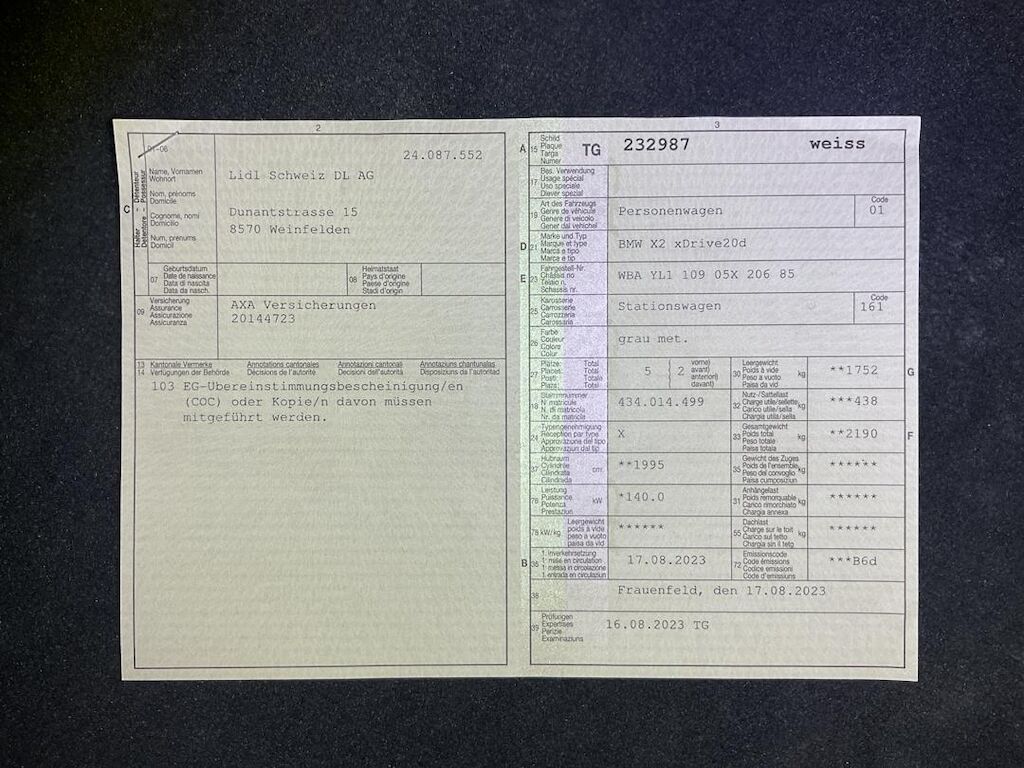 2
01-06
24.087.552
C
Halter - Détenteur
Detentore - Possessur
Name, Vornamen
Wohnort
Nom, prénoms
Domicile
Cognome, nomi
Domicilio
Num, prenums
Domicil
Lidl Schweiz DL AG
Dunantstrasse 15
8570 Weinfelden
07
Geburtsdatum
Date de naissance
Data di nascita
Data da nasch.
08
Heimatstaat
Pays d'origine
Paese d'origine
Stadi d'origin
09
Versicherung
Assurance
Assicurazione
Assicuranza
AXA Versicherungen
20144723
13 Kantonale Vermerke Annotations cantonales Annotazioni cantonali Annotaziuns chantunalas
14 Verfügungen der Behörde Décisions de l'autorité Decisioni dell'autorità Disposiziuns da l'autoritad
103 EG-Übereinstimmungsbescheinigung/en
(COC) oder Kopie/n davon müssen
mitgeführt werden.
3
A 15
Schild
Plaque
Targa
Numer
TG 232987 weiss
17
Bes. Verwendung
Usage spécial
Uso speciale
Diever spezial
19
Art des Fahrzeugs
Genre de véhicule
Genere di veicolo
Gener dal vehichel
Personenwagen
Code
01
D 21
Marke und Typ
Marque et type
Marca e tipo
Marca e tip
BMW X2 xDrive20d
E 23
Fahrgestell-Nr.
Châssis no
Telaio n.
Schassis nr.
WBA YL1 109 05X 206 85
25
Karosserie
Carrosserie
Carrozzeria
Carossaria
Stationswagen
Code
161
26
Farbe
Couleur
Colore
Colur
grau met.
27
Plätze: Total
Places: Total
Posti: Totale
Plazs: Total
5
2
vorne)
avant)
anteriori)
davant)
30
Leergewicht
Poids à vide
Peso a vuoto
Paisa da vid
kg
**1752
G
18
Stammnummer
N° matricule
N. di matricola
Nr. da matricla
434.014.499
32
Nutz-/Sattellast
Charge utile/sellette
Carico utile/sella
Chargia utila/sella
kg
***438
24
Typengenehmigung
Réception par type
Approvazione del tipo
Approvaziun dal tip
X
33
Gesamtgewicht
Poids total
Peso totale
Paisa totala
kg
**2190
F
37
Hubraum
Cylindrée
Cilindrata
Cilindrada
cm³
**1995
35
Gewicht des Zuges
Poids de l'ensemble
Peso del convoglio
Paisa cumposiziun
kg
******
76
Leistung
Puissance
Potenza
Prestaziun
kW
*140.0
31
Anhängelast
Poids remorquable
Carico rimorchiato
Chargia annexa
kg
******
78 kW/kg
Leergewicht
poids à vide
peso a vuoto
paisa da vid
******
55
Dachlast
Charge sur le toit
Carico sul tetto
Chargia sin il tetg
kg
******
B 36
1. Inverkehrsetzung
1re mise en circulation
1a messa in circolazione
1. entrada en circulaziun
17.08.2023
72
Emissionscode
Code émissions
Codice emissioni
Code d'emissiuns
***B6d
38
Frauenfeld, den 17.08.2023
39
Prüfungen
Expertises
Perizie
Examinaziuns
16.08.2023 TG